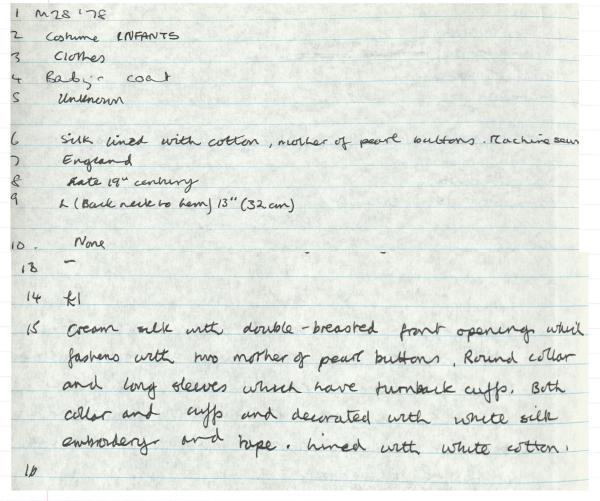 1 M28 '78
2 Costume INFANTS
3 Clothes
4 Baby's coat
5 Unknown
6 Silk lined with cotton, mother of pearl buttons. Machine sewn
7 England
8 Late 19th century
9 L (Back neck to hem) 13" (32 cm)
10. None
13 –
14 £1
15 Cream silk with double-breasted front opening which
fastens with two mother of pearl buttons. Round collar
and long sleeves which have turnback cuffs. Both
collar and cuffs and decorated with white silk
embroidery and tape. Lined with white cotton.